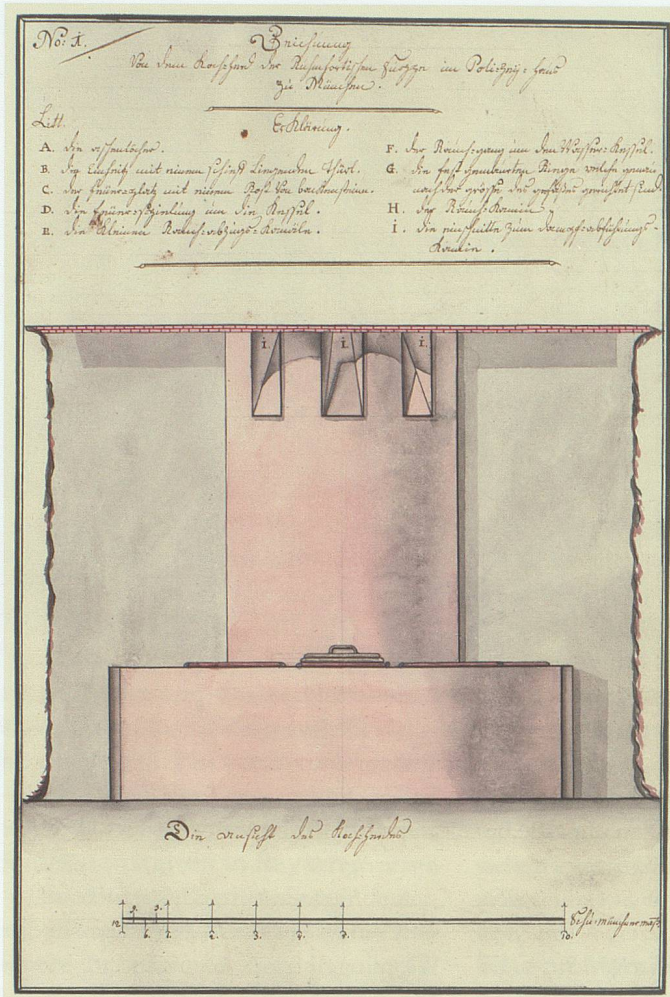 No: 1.
Zeichnung
Von dem Kochherd der Rumfortischen Suppe im Polizey=Haus
zu München.
Litt. Erklärung.
A. die aschenlöcher.
B. der mit einem schief liegenden Thürl.
C. der feuer=platz mit einem Rost von bachensteinen.
D. die feuer=Spielung um die Kessel.
E. die Kleinen Rauch=abzugs=Kanäle.
F. der Rauch=gang um den Wasser=Kessel.
G. die fest gemaurten Ringe welche genau
nach der grösse des gerichtet sind
H. der Rauch=Kamin
I. die einschnitte zum dampf=abführungs=
Kamin.
i. i. i.
Die ansicht des Kochherdes
9. 3.
12 6. 1. 2. 3. 4. 5. 10. Schu=münchner maß